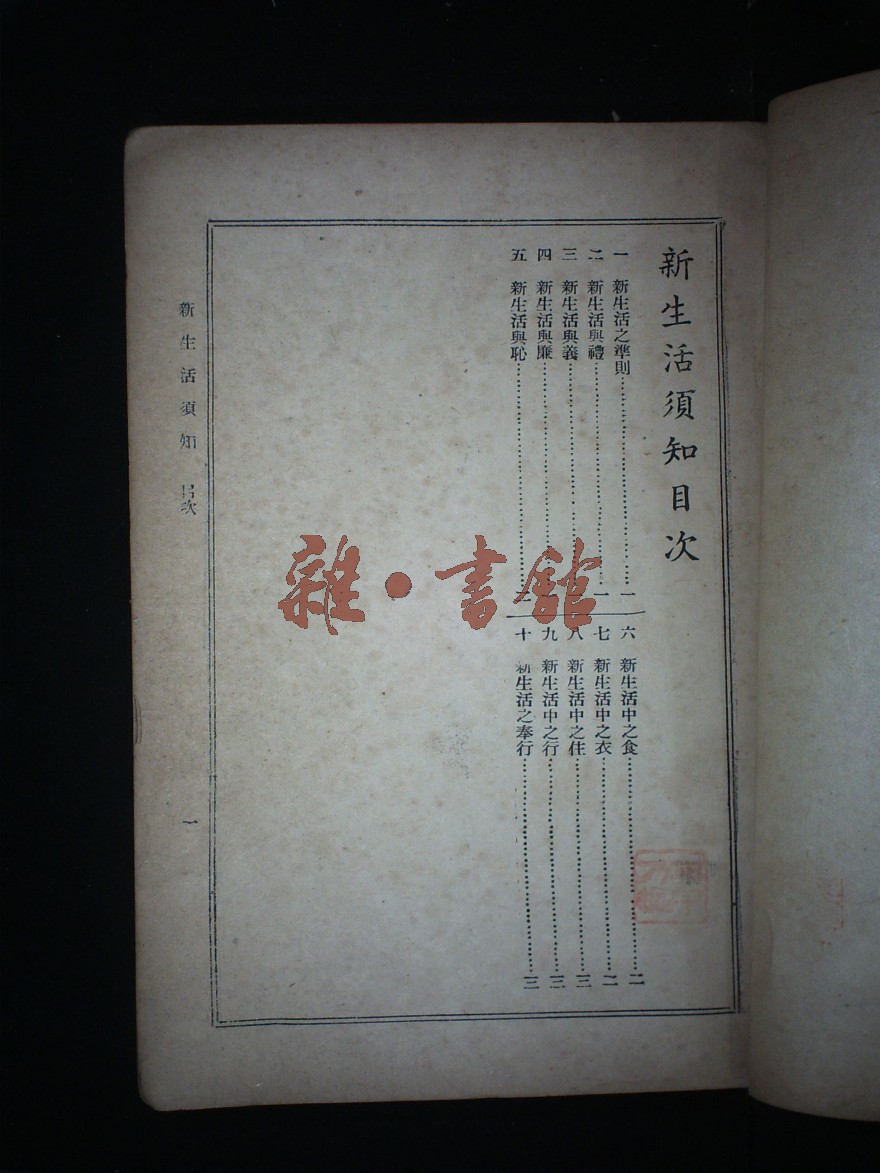 新生活須知目次
一　新生活之準則……一
二　新生活與禮……一
三　新生活與義……
四　新生活與廉……
五　新生活與恥……二
六　新生活中之食……二
七　新生活中之衣……二
八　新生活中之住……三
九　新生活中之行……三
十　新生活之奉行……三
新生活須知　目次
一
雜·書館